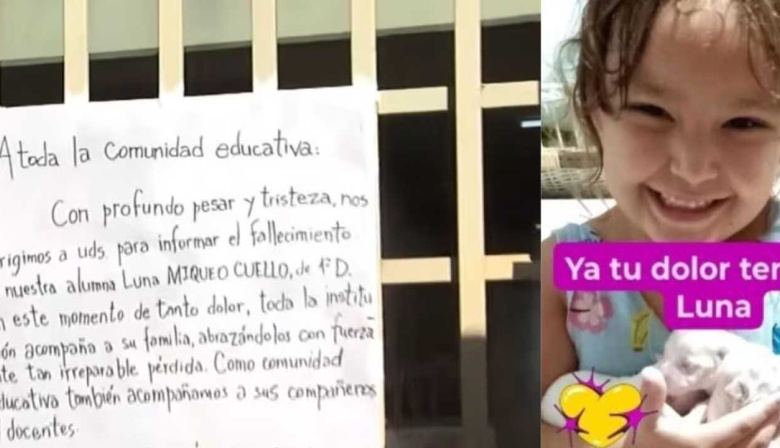 A toda la comunidad educativa:
Con profundo pesar y tristeza, nos
rigimos a uds. para informar el fallecimiento
nuestra alumna Luna MIQUEO CUELLO, de 1º D.
n este momento de tanto dolor, toda la institu
ón acompaña a su familia, abrazándolos con fuerza
te tan irreparable pérdida. Como comunidad
ducativa también acompañamos a sus compañeros
docentes.
Ya tu dolor ter
Luna